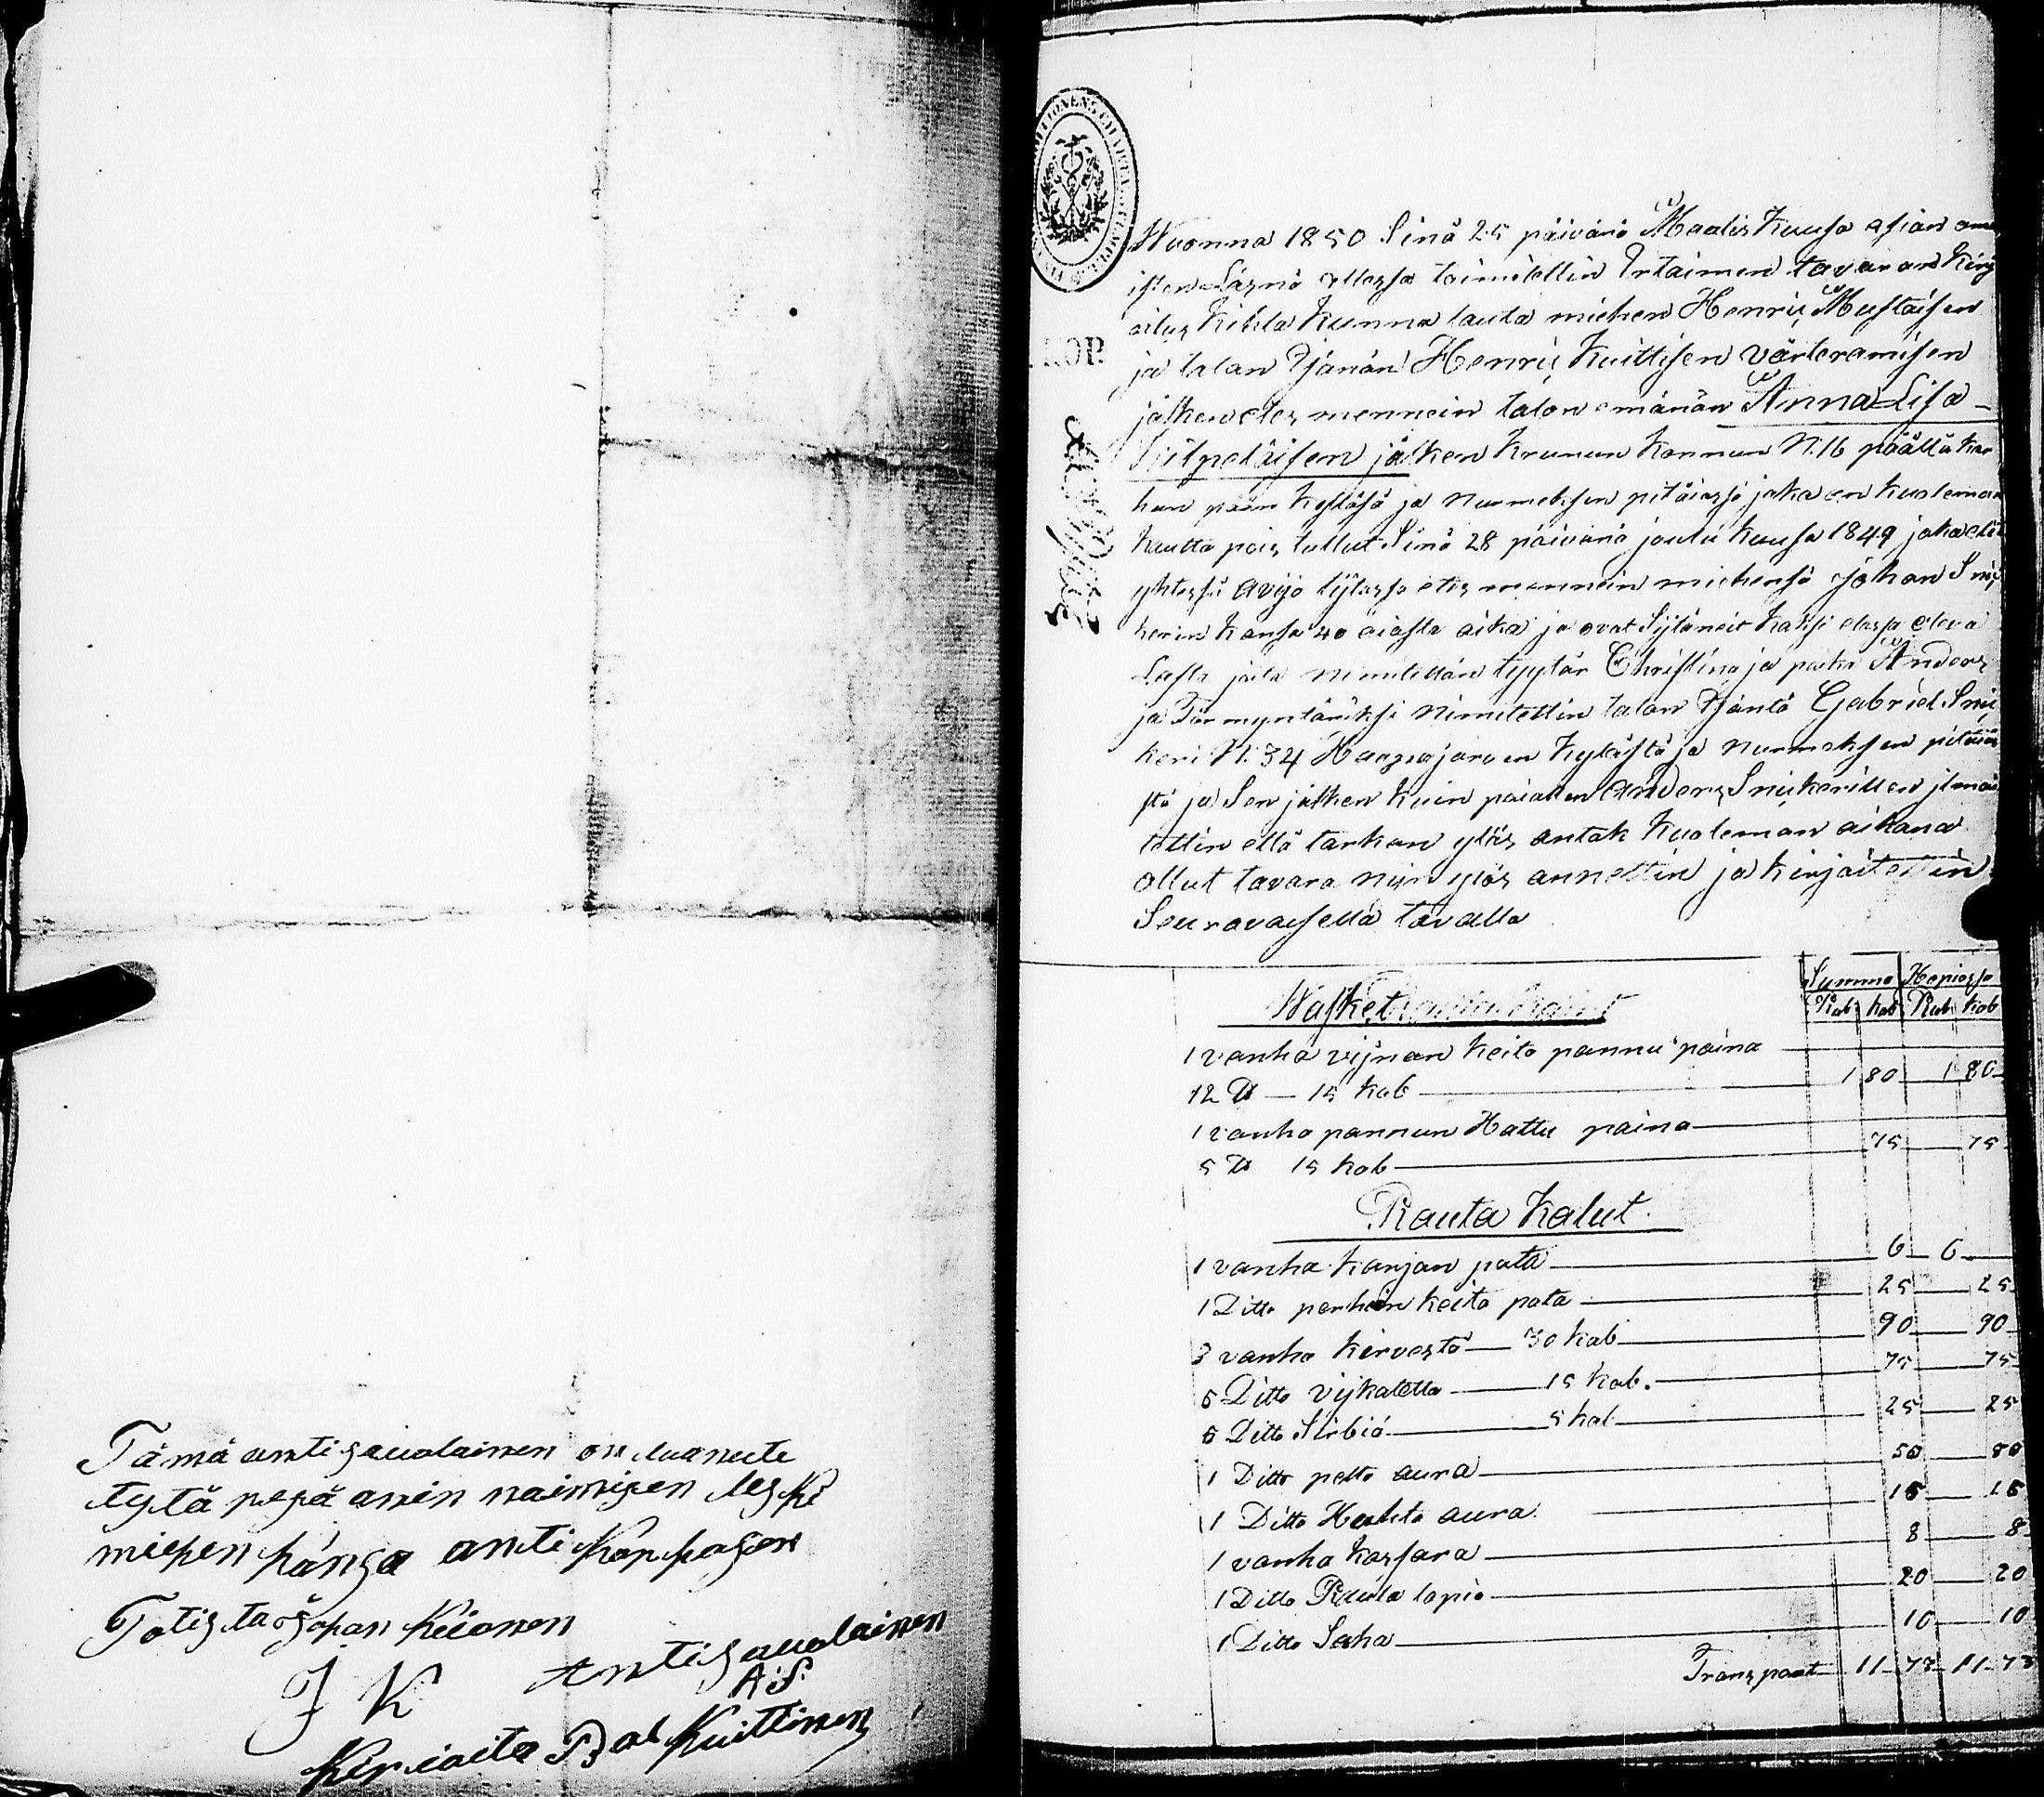 Tämä antisaualainen on luanute
tytä pesä anin naimisen les ki
miehen känsa anti Korhosen
Totista Johan Keionen
J K
antisaualainen
A S
Kirioita Pal Kuittinen
KOP.
Wuonna 1850 Sinä 25 päivänä Maalis Kuusa asian om
isten Läsnä ollessa toimitettin Irtaimen tavaran Kirj
oitus Kihla Kunna lauta miehen Henriⱼ Mustaisen
ja talan Isänän Henriⱼ Kuittisen värteramisen
jälken etes mennein talon emänän Anna Lisa
Kilpeläisen jälken Krunun Konnun N. 16 päältä Kar
hun pään Kylässä ja Nurmeksen pitäissä joka on Kualeman
kautta pois tullut Sinä 28 päivänä joulu kuusa 1849 joka eli
yhtessä avijo Sijtässa etes mennein miehensä Johan Snij
kerin Kansa 40 aiasta aika ja ovat Sijtäneit Kaksi elassa oleva
Lasta joita nimitetän tyytär Christina ja poika Anders
ja Förmyntäriksi nimitettin talon Isäntä Gabriel Snij
keri N. 34 Haapajarven Kylästä ja Nurmeksen pitäiä
stä ja Sen jälken kuin pojallen Anders Snijkerillen ilmoi
tettin että tarkan ylös antak Kualeman aikana
ollut tavara nijn ylös annettin ja kirjaitettin
Seuravaisella tavalla
Summa Hopiassa
Rub. kob Rub kob
Wasket
1 vanha vijnan Keito pannu paina
12 ℔ — 15 kob — 1 80 — 1 80
1 vanha pannun Hattu paina
5 ℔ 15 kob — 75 — 75
Rauta Kalut.
1 vanha karjan pata — 6 — 6 —
1 Ditto perhen keito pata — 25 — 25
3 vanha kirvestä — 30 kob — 90 — 90
5 Ditto vijkatetta — 15 kob. — 75 — 75
5 Ditto Sirbiä — 5 kob — 25 — 25
1 Ditto pelto aura — 50 — 50
1 Ditto Huhta aura — 15 — 15
1 vanha kassara — 8 — 8
1 Ditto Rauta lapio — 20 — 20
1 Ditto Saha — 10 — 10
Transpoat — 11 - 73 - 11 - 73